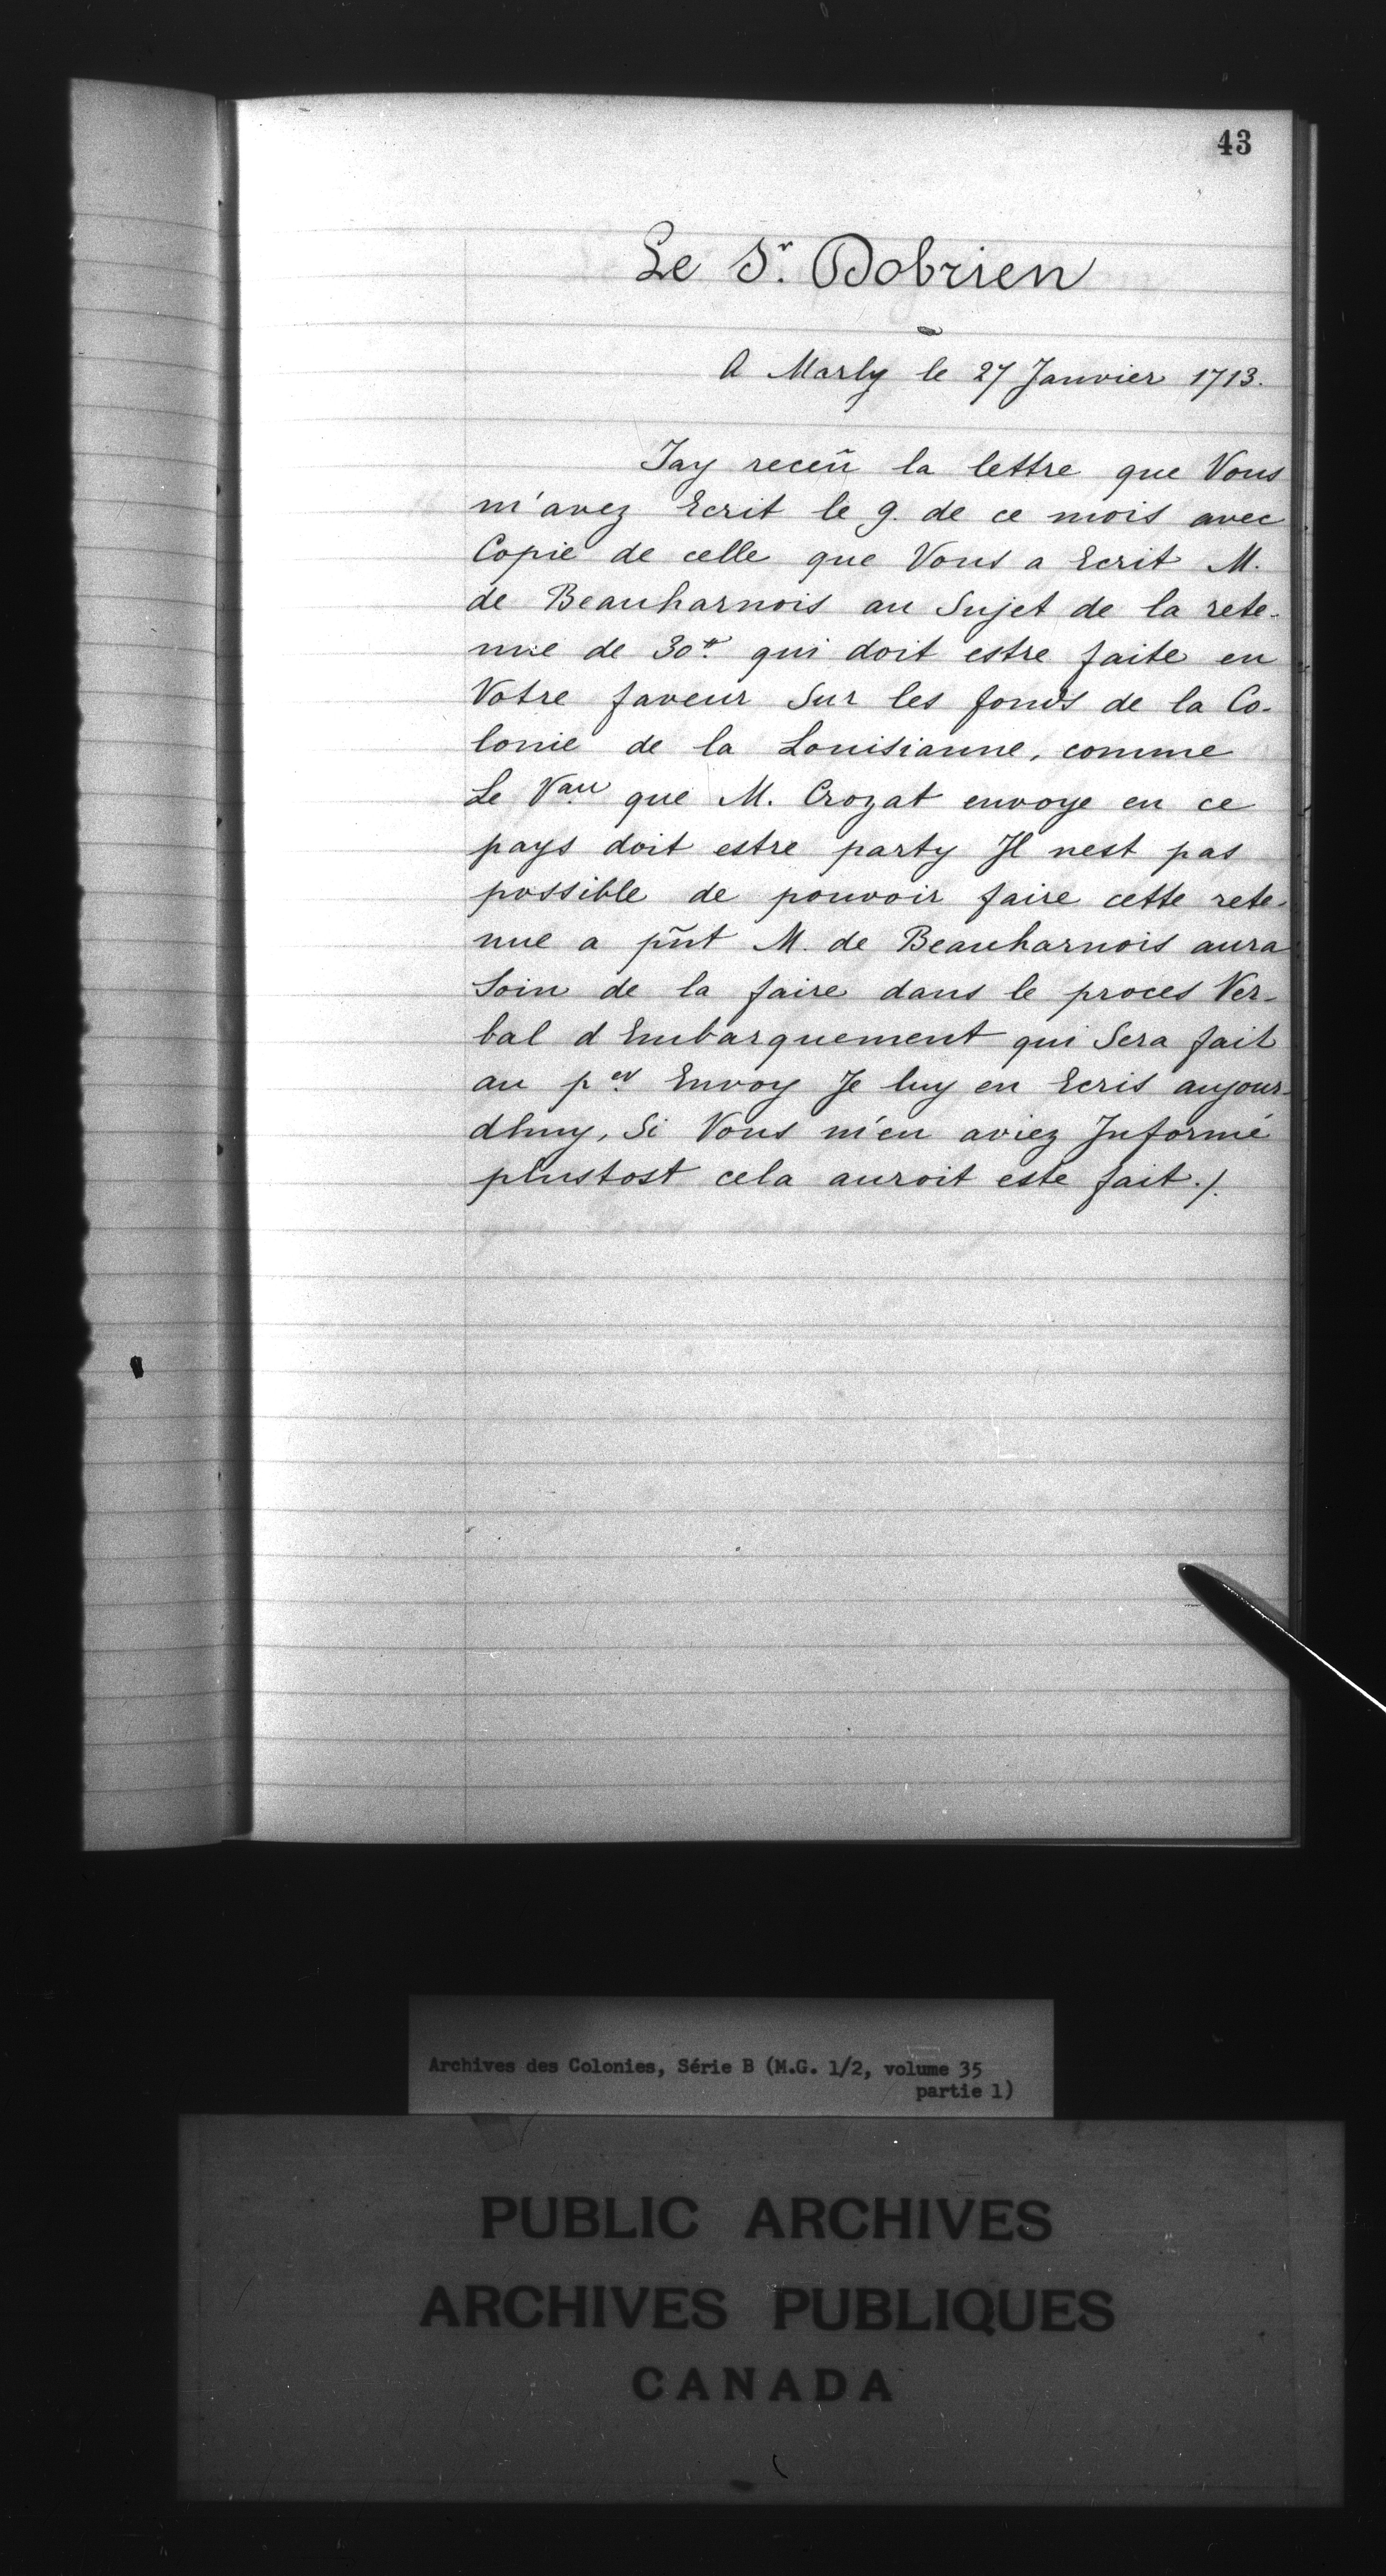 43
Le Sr. Dobrien
A Marly le 27 Janvier 1713.
Jay receū la lettre que Vous
m'avez Ecrit le 9. de ce mois avec
Copie de celle que Vous a Ecrit M.
de Beauharnois au Sujet de la rete-
nue de 30tt qui doit estre faite en
Votre faveur Sur les fonds de la Co-
lonie de la Louisianne, comme
Le Vau que M. Crozat envoye en ce
pays doit estre party Il nest pas
possible de pouvoir faire cette rete-
nue a pñt M. de Beauharnois aura
Soin de la faire dans le proces Ver-
bal d Embarquement qui Sera fait
au per Envoy Je luy en Ecris aujour-
dhuy, Si Vous m'en aviez Informé
plustost cela auroit esté fait./.
Archives des Colonies, Série B (M.G. 1/2, volume 35
partie 1)
PUBLIC ARCHIVES
ARCHIVES PUBLIQUES
CANADA